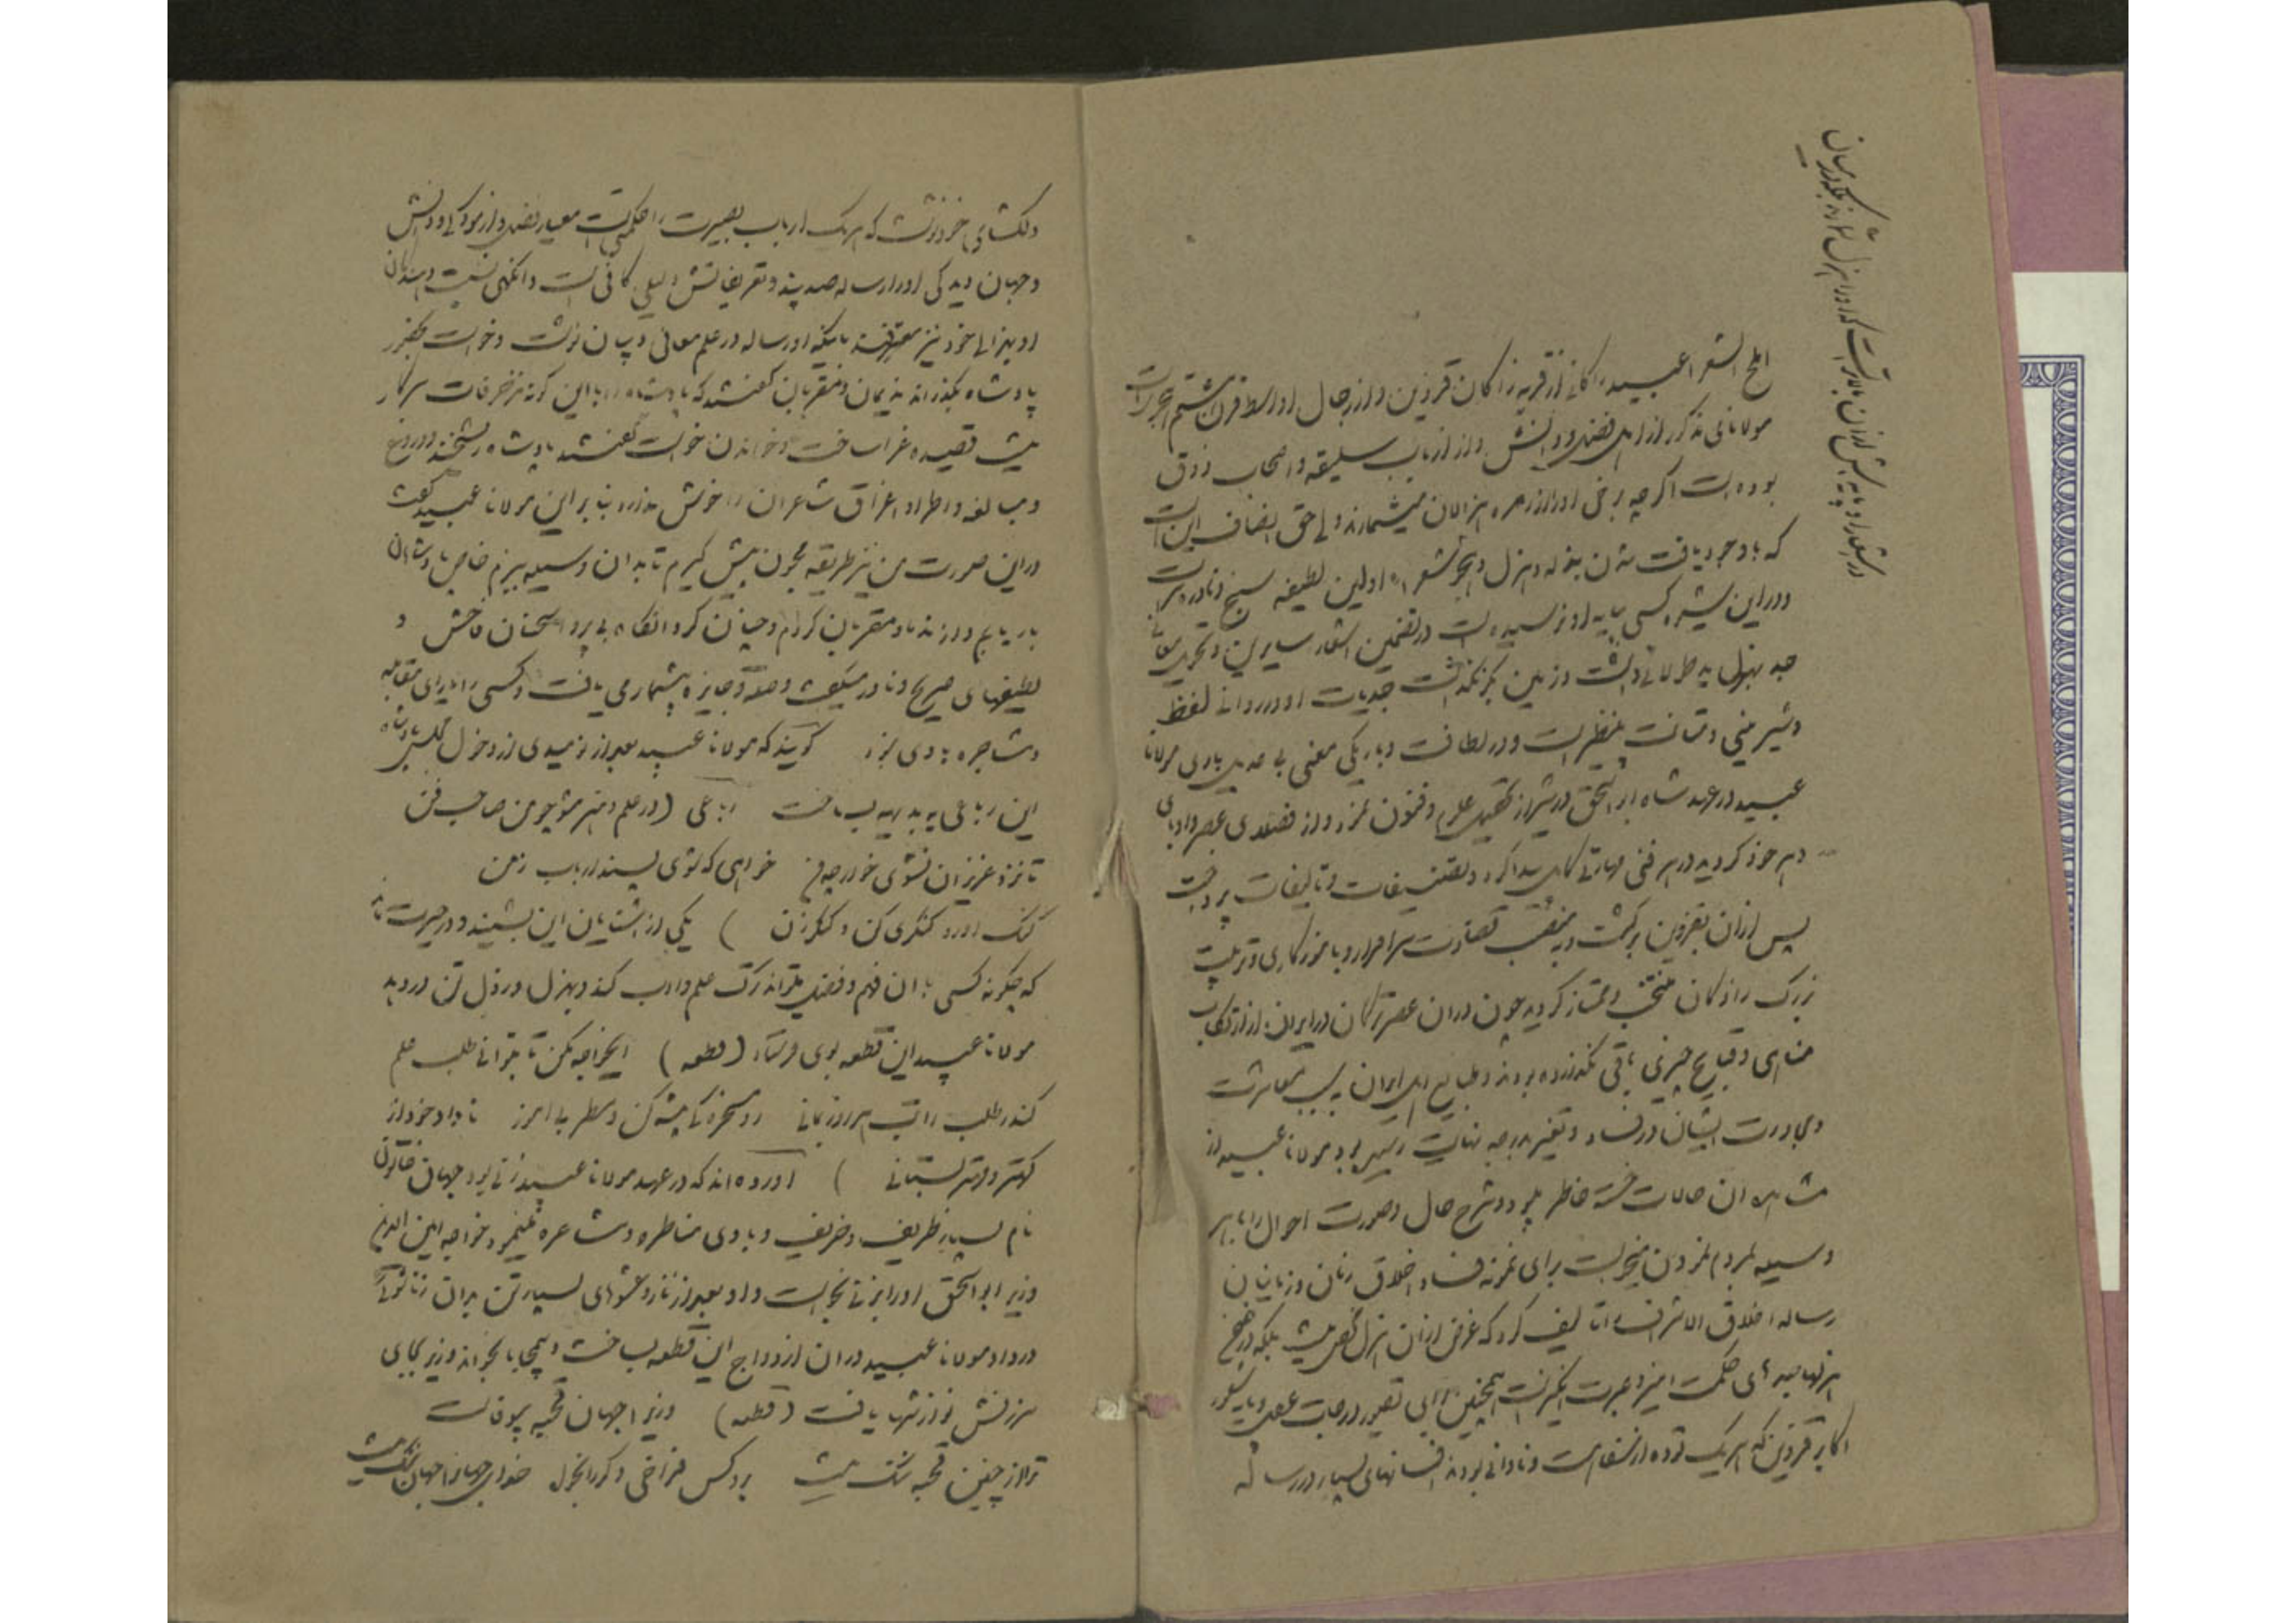 املح الشعرا عبید زاکانی از قریه زاکان قزوین و از رجال اواسط قرن هشتم هجریست
مولانای مذکور از اهل فضل و دانش و از ارباب سلیقه و اصحاب ذوق
بوده است اگرچه برخی او را از زمره هزالان میشمارند ولی حق انصاف این است
که با وجود یافت شدن بذله و هزل و هجو شعر او اولین لطیفه سنج و نادره
و در این شیوه کسی بپایه او نرسیده است در تضمین اشعار سایرین و تحویل معانی
جد بهزل ید طولائی داشت و زمین بکر نگذاشت جدیات او در روانی لفظ
و شیرینی و متانت بینظیر است و در لطافت و باریکی معنی بی عدیل باری مولانا
عبید در عهد شاه ابو اسحق در شیراز تحصیل علوم و فنون نمود و از فضلای عصر و ادبای
دهر خود گردید در هر فنی مهارتی کامل پیدا کرد و تصنیفات و تالیفات پرداخت
پس از آن بقزوین برگشت و به منصب قضاوت سرافراز و باموزگاری و تربیت
بزرگ زادگان منتخب و ممتاز گردید چون در آن عصر ترکان در ایران از ارتکاب
مناهی و قبایح چیزی باقی نگذارده بودند و طبایع اهل ایران به سبب معاشرت
و مجاورت ایشان در فساد و تغییر بدرجه نهایت رسیده بود مولانا عبید از
مشاهده آن حالات خسته خاطر بود و شرح حال و صورت احوال را بهر
وسیله بمردم نمودن میخواست برای نمونه فساد اخلاق زنان و زمانیان
رساله اخلاق الاشراف را تالیف کرد که غرض از آن هزل محض نیست بلکه در ضمن
هزلها جدهای حکمت آمیز و عبرت انگیز است همچنین برای تصویر درجات عقل و پایه شعور
اکابر قزوین که هریک توده از سفاهت و نادانی بودند افسانهای بسیار در رساله
در اشعار او پایه بیش از آن بالاتر است که او را هزل شمارند بلکه در میان
دلکشای خود نوشت که هریک ارباب بصیرت را حکمتی است معیار فضل و آزمودگی و دانش
و جهان دیدگی او را رساله صد پند و تعریفاتش دلیلی کافی است و انگهی نسبت دهندگان
او بهزالی خود نیز معترفند باینکه او رساله در علم معانی و بیان نوشت و خواست بحضور
پادشاه بگذراند ندیمان و مقربان گفتند که پادشاه را باین گونه مزخرفات سرکار
نیست قصیده غرا ساخت و خواندن خواست گفتند پادشاه ریشخند و دروغ
و مبالغه و اطراء و اغراق شاعران را خوش ندارد بنابراین مولانا عبید گفت
در این صورت من نیز طریقه مجون پیش گیرم تا بدان وسیله ببزم خاص پادشاه
باریابم و از ندماء و مقربان گردم و چنان کرد آنگاه بی پروا سخنان فاحش و
لطیفهای صریح و نادر میگفت و صله و جایزه بیشمار می یافت و کسی را یارای مقابله
و مشاجره با وی نبود گویند که مولانا عبید بعد از نومیدی از دخول مجلس پادشاه
این رباعی به بدیهه بساخت رباعی (در علم و هنر مشو چو من صاحب فن
تا نزد عزیزان نشوی خوار چو من خواهی که شوی پسند ارباب زمن
کنگ آور و کنگری کن و کنگر زن ) یکی از آشنایان این بشنید و در حیرت ماند
که چگونه کسی با آن فهم و فضل بتواند ترک علم و ادب کند و بهزل و رذل تن در دهد
مولانا عبید این قطعه بوی فرستاد (قطعه) ایخواجه مکن تا بتوانی طلب علم
کاندر طلب راتب هر روزه بمانی رو مسخرگی پیشه کن و مطربی آموز تا داد خود از
کهتر و مهتر بستانی ) آورده اند که در عهد مولانا عبید زنی بود جهان خاتون
نام بسیار ظریف و حریف و با وی مناظره و مشاعره مینمود خواجه امین الدین
وزیر ابو اسحق او را بزنی بخواست و او بعد از ناز و عشوهای بسیار تن بدان زناشوئی
در داد مولانا عبید در آن ازدواج این قطعه بساخت و بیمحابا بخواند و وزیر بجای
سرزنش نوازشها یافت (قطعه) وزیرا جهان قحبه بیوفاست
ترا از چنین قحبه ننگ نیست برو کس فراخی دگر را بخواه خدای جهان را جهان تنگ نیست